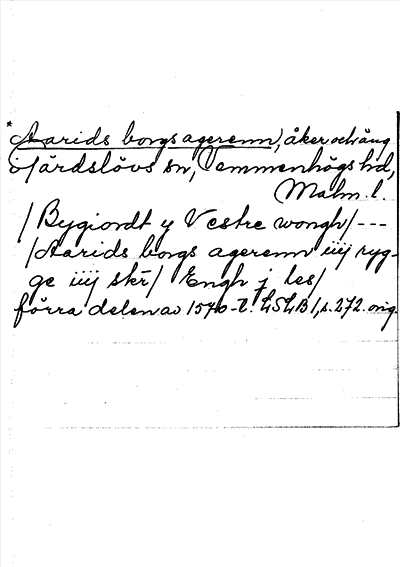 * Aarids borgs agerenn, åker och äng
i Järdslövs sn, Vemmenhögs hd,
Malm. l.
/Bygiordt y Vestre wongh/---
/Aarids borgs agerenn iiij ryg-
ge iiij skr/ Engh j les/
förra delen av 1540-t. LSLB 1, s. 272. orig.